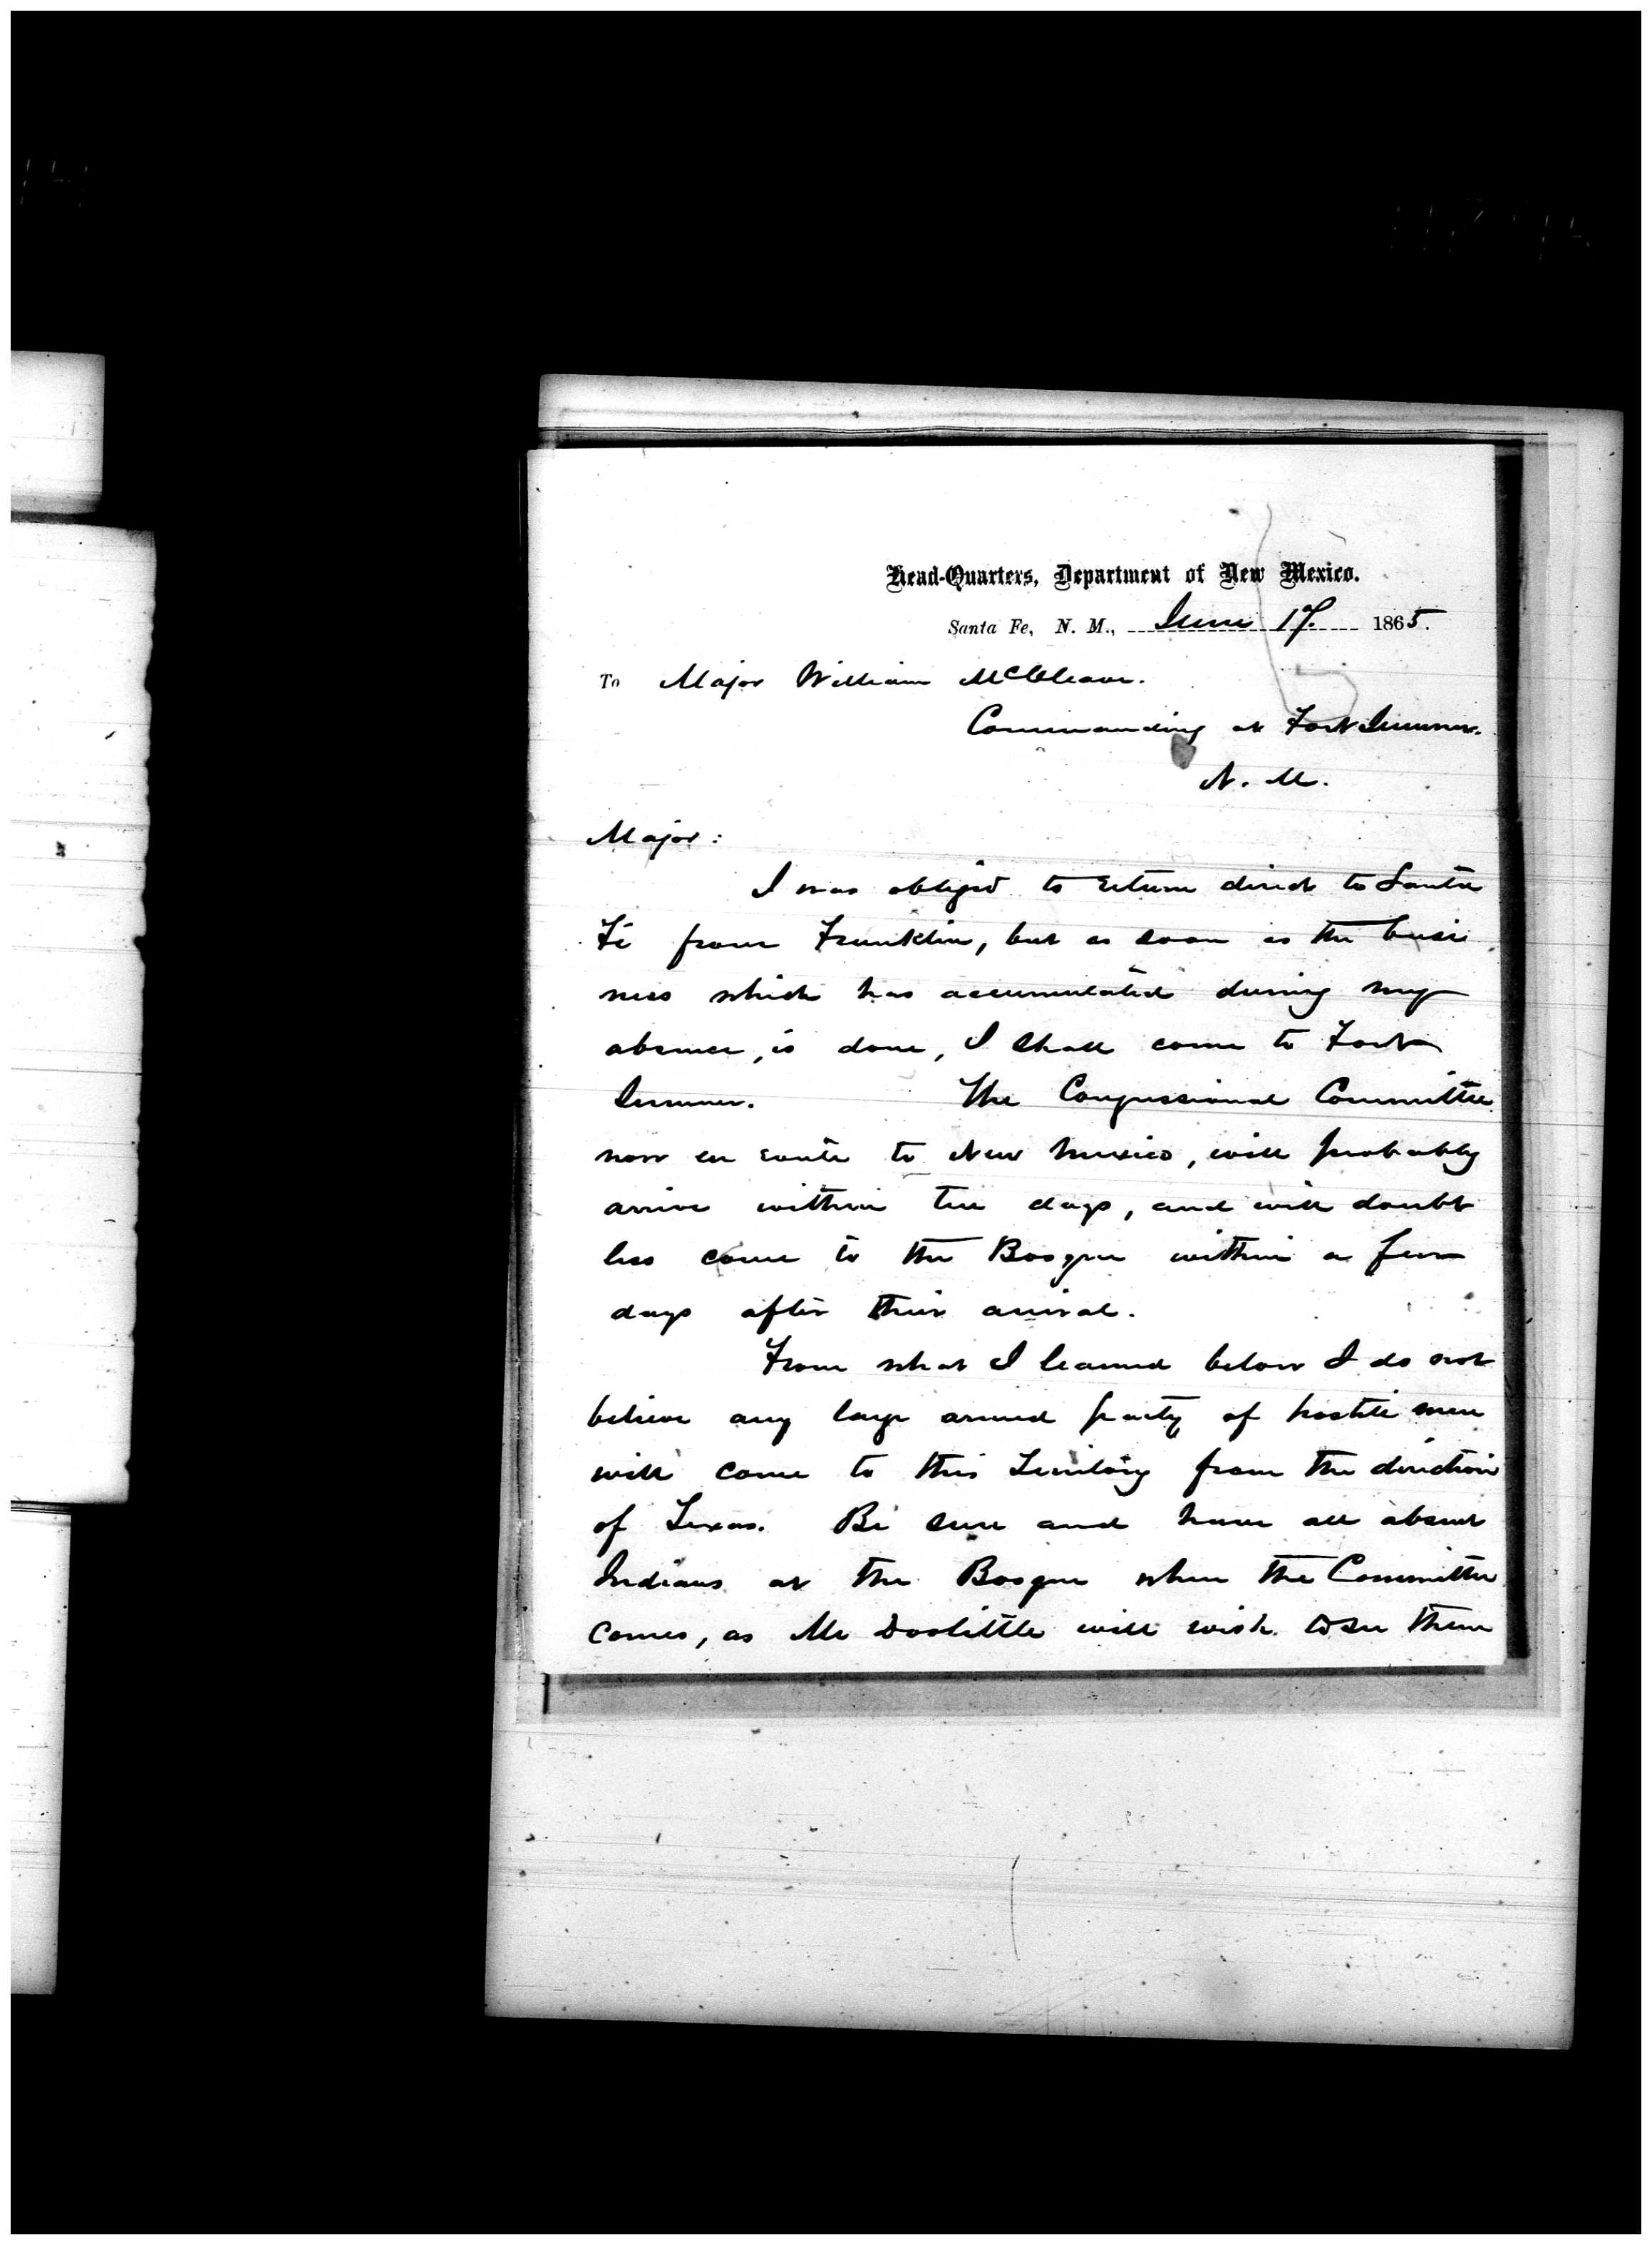 Head-Quarters, Department of New Mexico.
Santa Fe, N. M., June 17. 1865.
To Major William McCleave.
Commanding at Fort Sumner.
N. M.
Major:
I was obliged to return direct to Santa
Fé from Franklin, but as soon as the busi
ness which has accumulated during my
absence, is done, I shall come to Fort
Sumner. The Congressional Committee
now en route to New Mexico, will probably
arrive within ten days, and will doubt
less come to the Bosque within a few
days after their arrival.
From what I learned below I do not
believe any large armed party of hostile men
will come to this Territory from the direction
of Texas. Be sure and have all absent
Indians at the Bosque when the Committee
comes, as Mr Doolittle will wish to see them